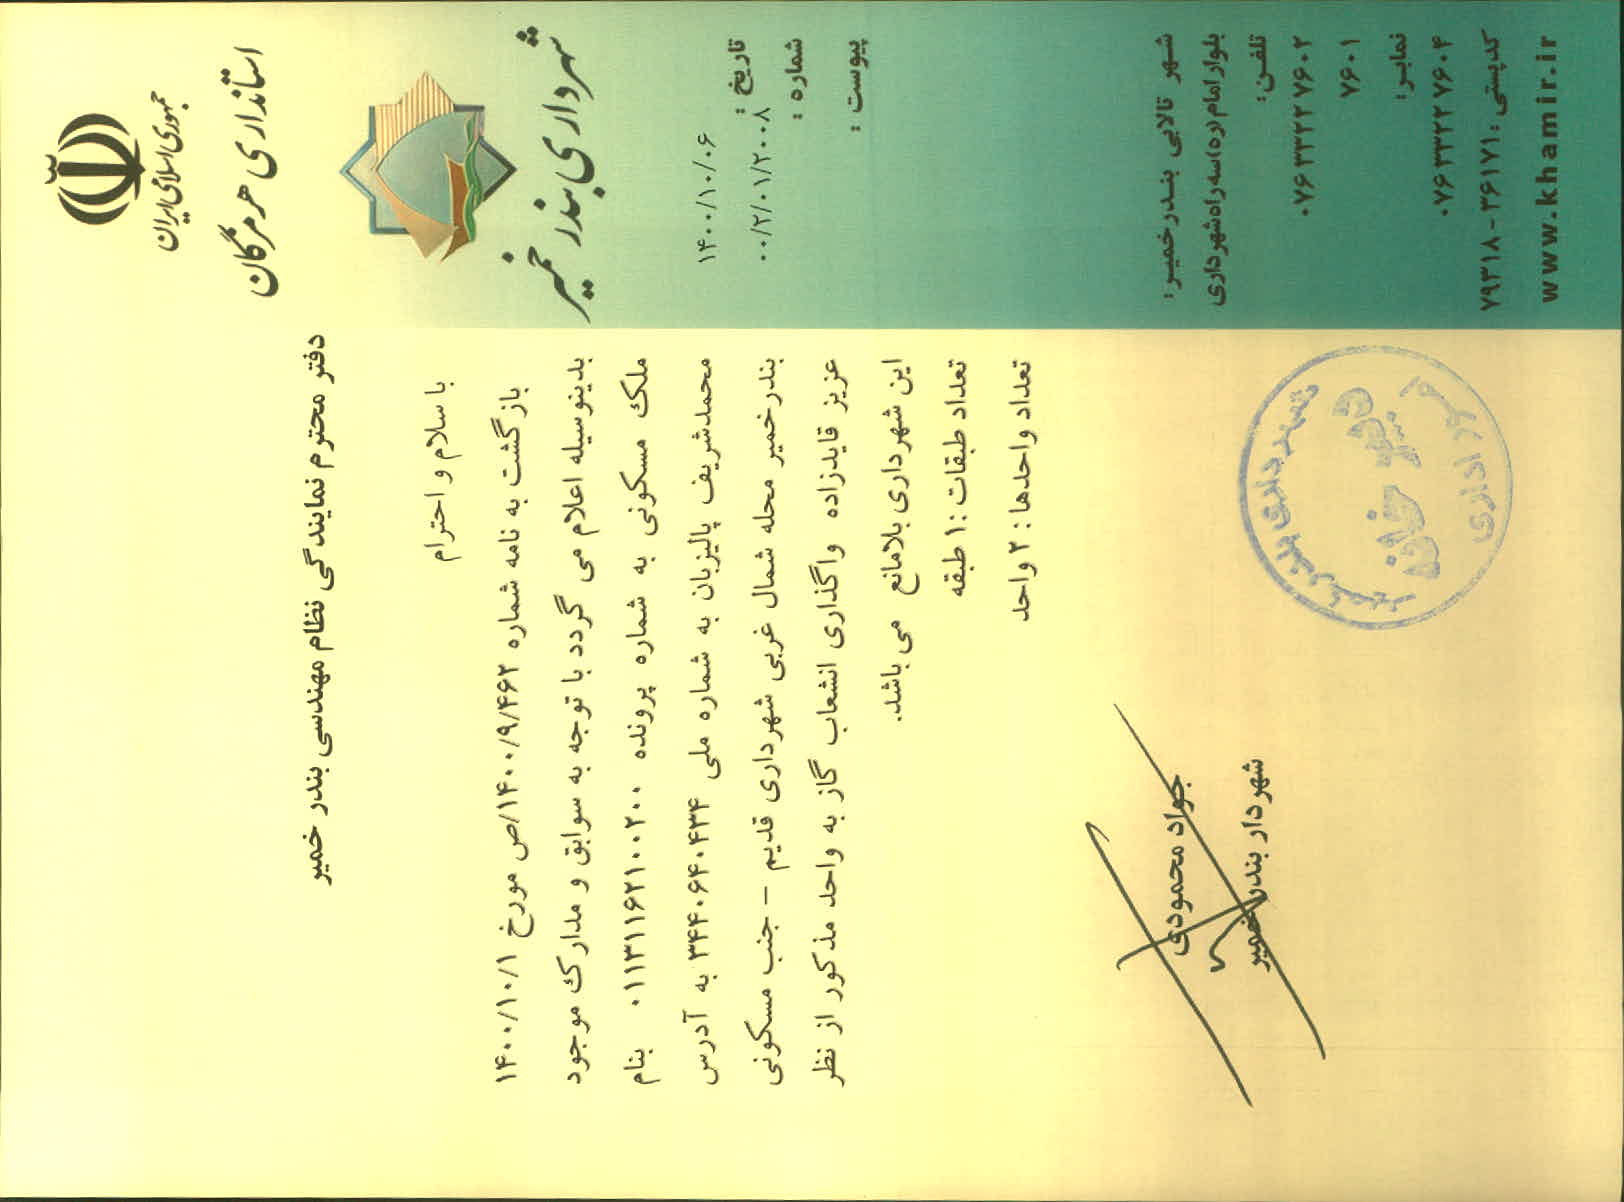 جمهوری اسلامی ایران
استانداری هرمزگان
شهرداری بندر خمیر
تاریخ :
۱۴۰۰/۱۰/۰۶
شماره :
۰۰/۲/۰۱/۲۰۰۸
پیوست :
دفتر محترم نمایندگی نظام مهندسی بندر خمیر
با سلام و احترام
بازگشت به نامه شماره ۱۴۰۰/۹/۴۶۲/ص مورخ ۱۴۰۰/۱۰/۱
بدینوسیله اعلام می گردد با توجه به سوابق و مدارک موجود
ملک مسکونی به شماره پرونده ۰۱۱۳۱۱۶۲۱۰۰۲۰۰ بنام
محمدشریف پالیزبان به شماره ملی ۳۴۴۰۶۴۰۴۳۴ به آدرس
بندرخمیر محله شمال غربی شهرداری قدیم - جنب مسکونی
عزیز قایدزاده واگذاری انشعاب گاز به واحد مذکور از نظر
این شهرداری بلامانع می باشد.
تعداد طبقات : ۱ طبقه
تعداد واحدها : ۲ واحد
جواد محمودی
شهردار بندر خمیر
شهرداری بندر خمیر
دبیرخانه
امور اداری
شهر تالابی بندرخمیر:
بلوار امام (ره) سه راه شهرداری
تلفن:
۰۷۶۳۳۲۲۷۶۰۲
۷۶۰۱
نمابر:
۰۷۶۳۳۲۲۷۶۰۴
کدپستی : ۳۶۱۷۱ - ۷۹۳۱۸
www.khamir.ir